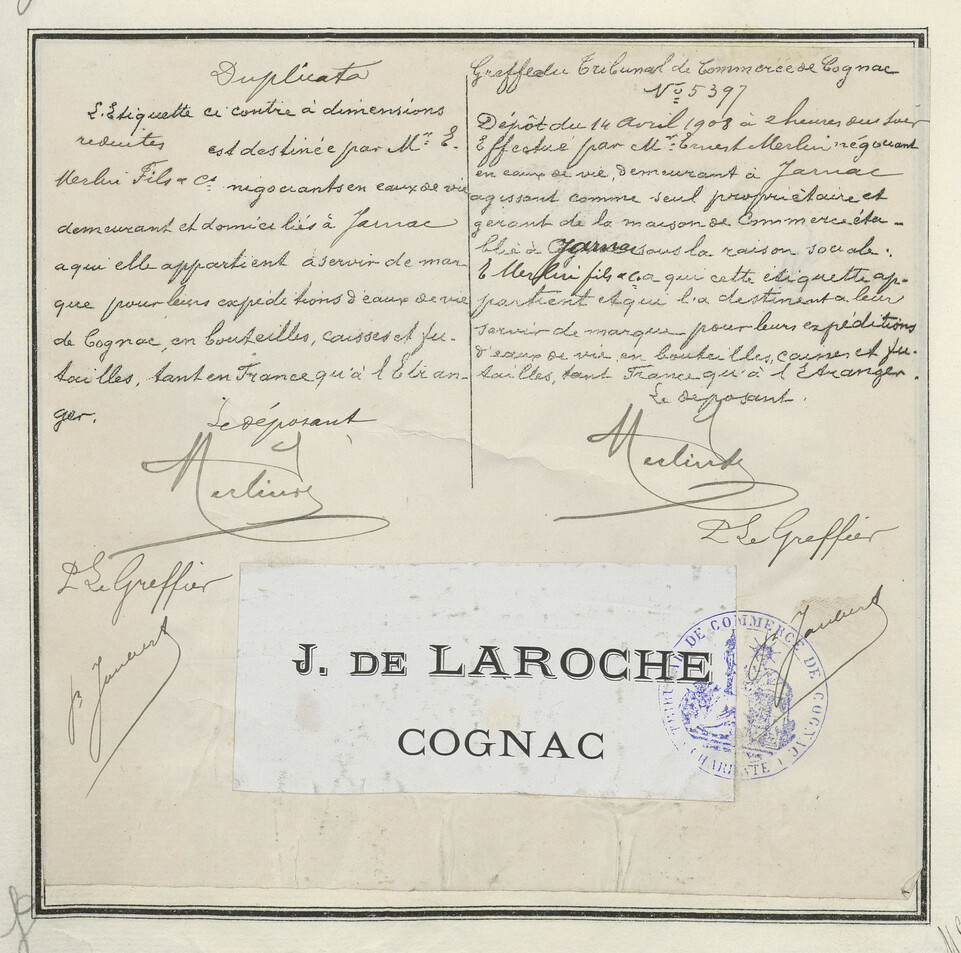 Duplicata
L'Etiquette ci contre à dimensions
reduites est destinée par Mr E.
Merlin Fils & Ce nigociants en eaux de vie
demeurant et domiciliés à Jarnac
a qui elle appartient à servir de mar-
que pour leurs expéditions d'eaux de vie
de Cognac, en bouteilles, caisses et fu-
tailles, tant en France qu'à l'Etran-
ger.
Le déposant
P Le Greffier
Greffe du Tribunal de Commerce de Cognac
No 5397
Dépôt du 14 Avril 1908 à 2 heures du soir
Effectué par Mr Ernest Merlin négociant
en eaux de vie, demeurant à Jarnac
agissant comme seul propriétaire et
gérant de la maison de Commerce éta-
blie à Jarnac sous la raison sociale:
E Merlin fils & Ce a qui cette étiquette ap-
partient et qui l'a destinent a leur
servir de marque pour leurs expéditions
d'eaux de vie, en bouteilles, caisses et fu-
tailles, tant France qu'à l'Etranger.
Le déposant.
P Le Greffier
J. DE LAROCHE
COGNAC
TRIBUNAL DE COMMERCE DE COGNAC
CHARENTE